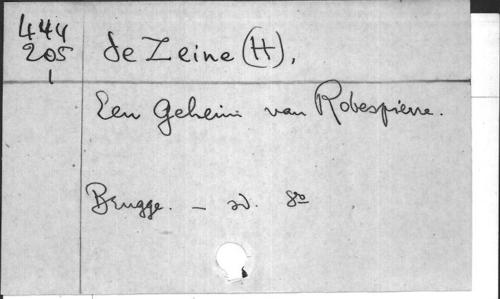 444
205
1
de Zeine (H),
Een Geheim van Robespierre.
Brugge. – sd. 8°